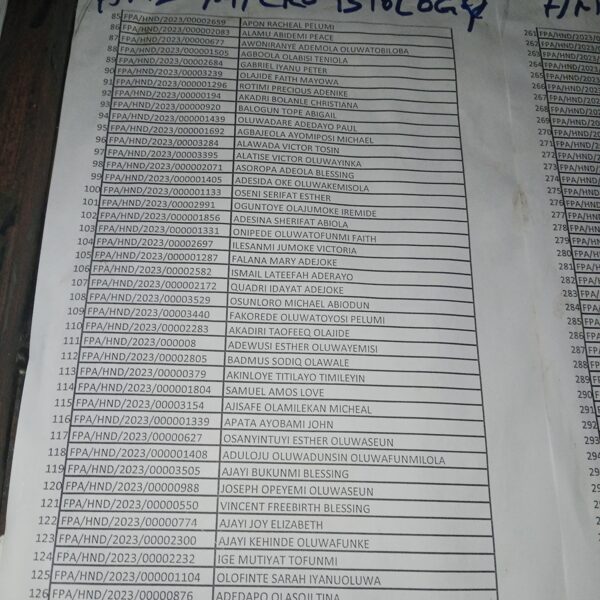 MICROBIOLOGY
85 FPA/HND/2023/00002659 APON RACHEAL PELUMI
86 FPA/HND/2023/00002083 ALAMU ABIDEMI PEACE
87 FPA/HND/2023/00000677 AWONIRANYE ADEMOLA OLUWATOBILOBA
88 FPA/HND/2023/000001505 AGBOOLA OLABISI TENIOLA
89 FPA/HND/2023/00002684 GABRIEL IYANU PETER
90 FPA/HND/2023/00003239 OLAJIDE FAITH MAYOWA
91 FPA/HND/2023/000001296 ROTIMI PRECIOUS ADENIKE
92 FPA/HND/2023/00000194 AKADRI BOLANLE CHRISTIANA
93 FPA/HND/2023/00000920 BALOGUN TOPE ABIGAIL
94 FPA/HND/2023/000001439 OLUWADARE ADEDAYO PAUL
95 FPA/HND/2023/000001692 AGBAJEOLA AYOMIPOSI MICHAEL
96 FPA/HND/2023/00003284 ALAWADA VICTOR TOSIN
97 FPA/HND/2023/00003395 ALATISE VICTOR OLUWAYINKA
98 FPA/HND/2023/000002071 ASOROPA ADEOLA BLESSING
99 FPA/HND/2023/000001405 ADESIDA OKE OLUWAKEMISOLA
100 FPA/HND/2023/000001133 OSENI SERIFAT ESTHER
101 FPA/HND/2023/00002991 OGUNTOYE OLAJUMOKE IREMIDE
102 FPA/HND/2023/000001856 ADESINA SHERIFAT ABIOLA
103 FPA/HND/2023/000001331 ONIPEDE OLUWATOFUNMI FAITH
104 FPA/HND/2023/00002697 ILESANMI JUMOKE VICTORIA
105 FPA/HND/2023/000001287 FALANA MARY ADEJOKE
106 FPA/HND/2023/00002582 ISMAIL LATEEFAH ADERAYO
107 FPA/HND/2023/000002172 QUADRI IDAYAT ADEJOKE
108 FPA/HND/2023/00003529 OSUNLORO MICHAEL ABIODUN
109 FPA/HND/2023/00003440 FAKOREDE OLUWATOYOSI PELUMI
110 FPA/HND/2023/00002283 AKADIRI TAOFEEQ OLAJIDE
111 FPA/HND/2023/000008 ADEWUSI ESTHER OLUWAYEMISI
112 FPA/HND/2023/00002805 BADMUS SODIQ OLAWALE
113 FPA/HND/2023/00000379 AKINLOYE TITILAYO TIMILEYIN
114 FPA/HND/2023/000001804 SAMUEL AMOS LOVE
115 FPA/HND/2023/00003154 AJISAFE OLAMILEKAN MICHEAL
116 FPA/HND/2023/000001339 APATA AYOBAMI JOHN
117 FPA/HND/2023/00000627 OSANYINTUYI ESTHER OLUWASEUN
118 FPA/HND/2023/000001408 ADULOJU OLUWADUNSIN OLUWAFUNMILOLA
119 FPA/HND/2023/00003505 AJAYI BUKUNMI BLESSING
120 FPA/HND/2023/00000988 JOSEPH OPEYEMI OLUWASEUN
121 FPA/HND/2023/00000550 VINCENT FREEBIRTH BLESSING
122 FPA/HND/2023/00000774 AJAYI JOY ELIZABETH
123 FPA/HND/2023/00002300 AJAYI KEHINDE OLUWAFUNKE
124 FPA/HND/2023/00002232 IGE MUTIYAT TOFUNMI
125 FPA/HND/2023/000001104 OLOFINTE SARAH IYANUOLUWA
126 FPA/HND/2023/00000876 ADEDAPO OLASOJI TINA